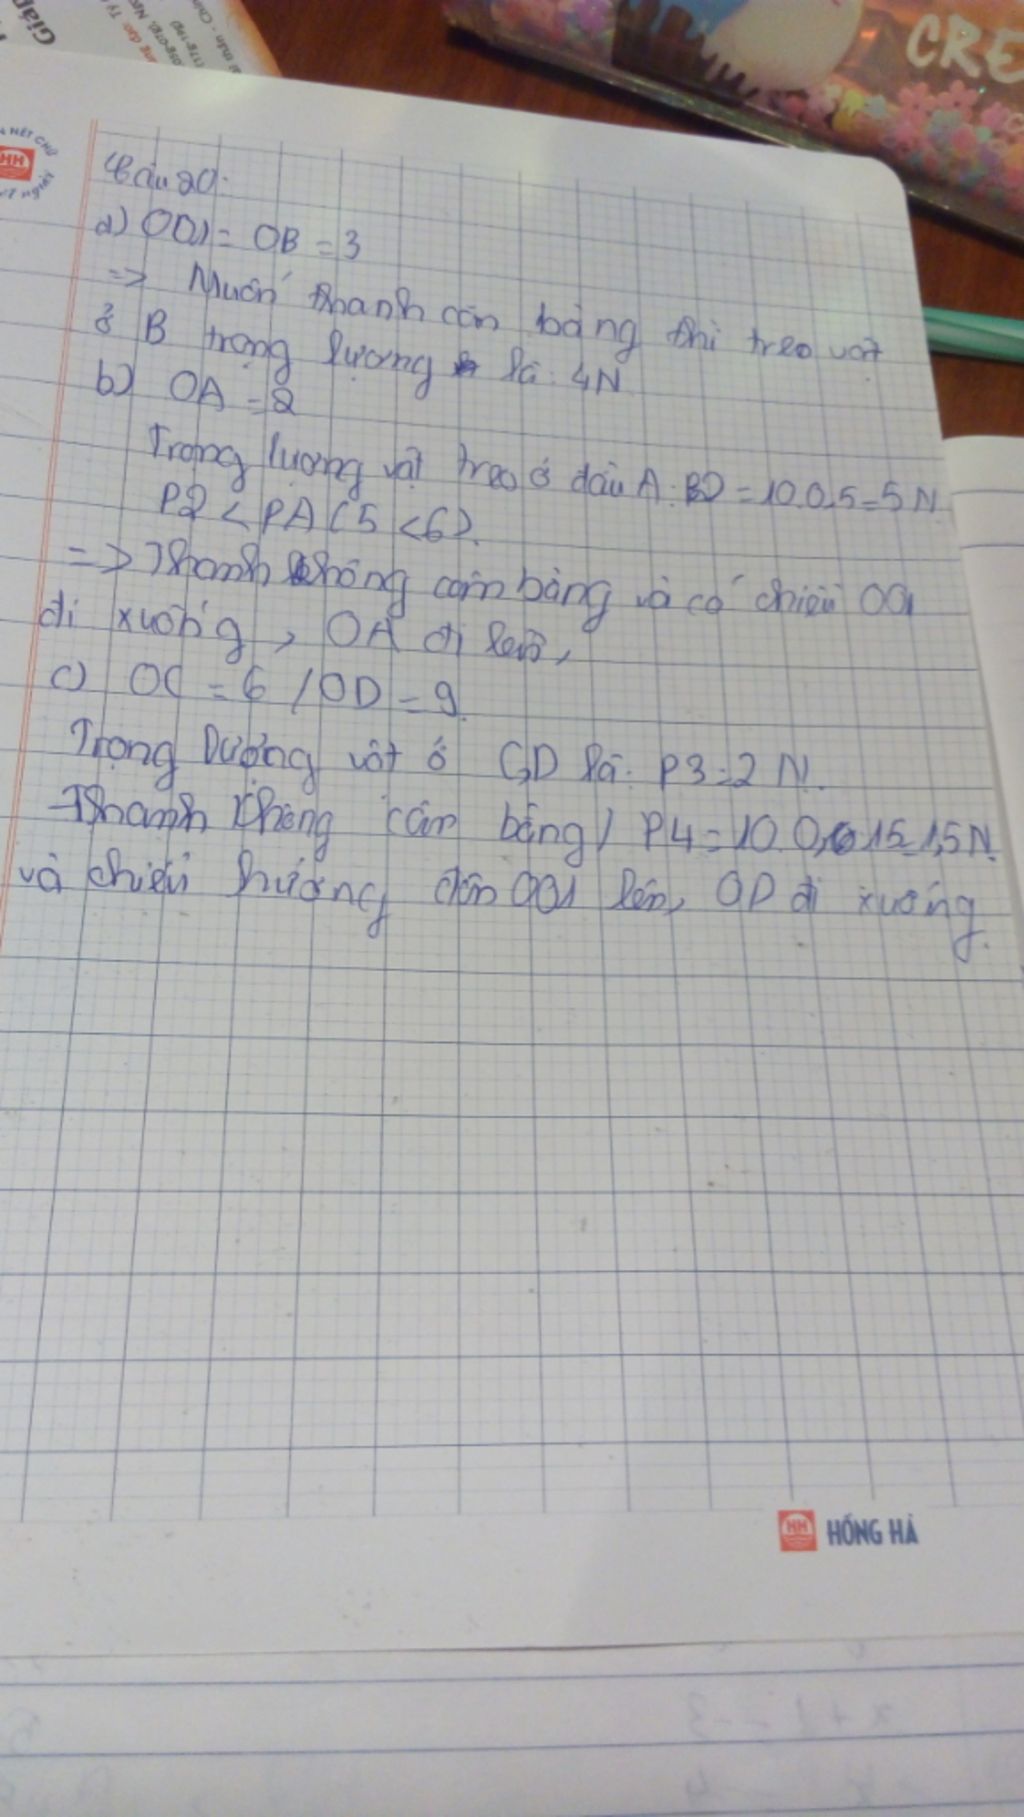 Câu 20.
a) OO1 = OB = 3
=> Muốn thanh cân bằng thì treo vật
ở B trọng lượng là: 4N
b) OA = 2
Trọng lượng vật treo ở đầu A: P2 = 10.0,5 = 5 N
P2 < PA (5 < 6).
=> Thanh không cân bằng và có chiều OO1
đi xuống, OA đi lên,
c) OC = 6 / OD = 9.
Trọng lượng vật ở C,D là: P3 = 2 N.
Thanh không cân bằng / P4 = 10.0,15 = 1,5N.
và chiều hướng đến OO1 lên, OD đi xuống.
N NÉT CHỮ
HH
HH HỒNG HÀ
CRE
Giáp
x + 1 = -3